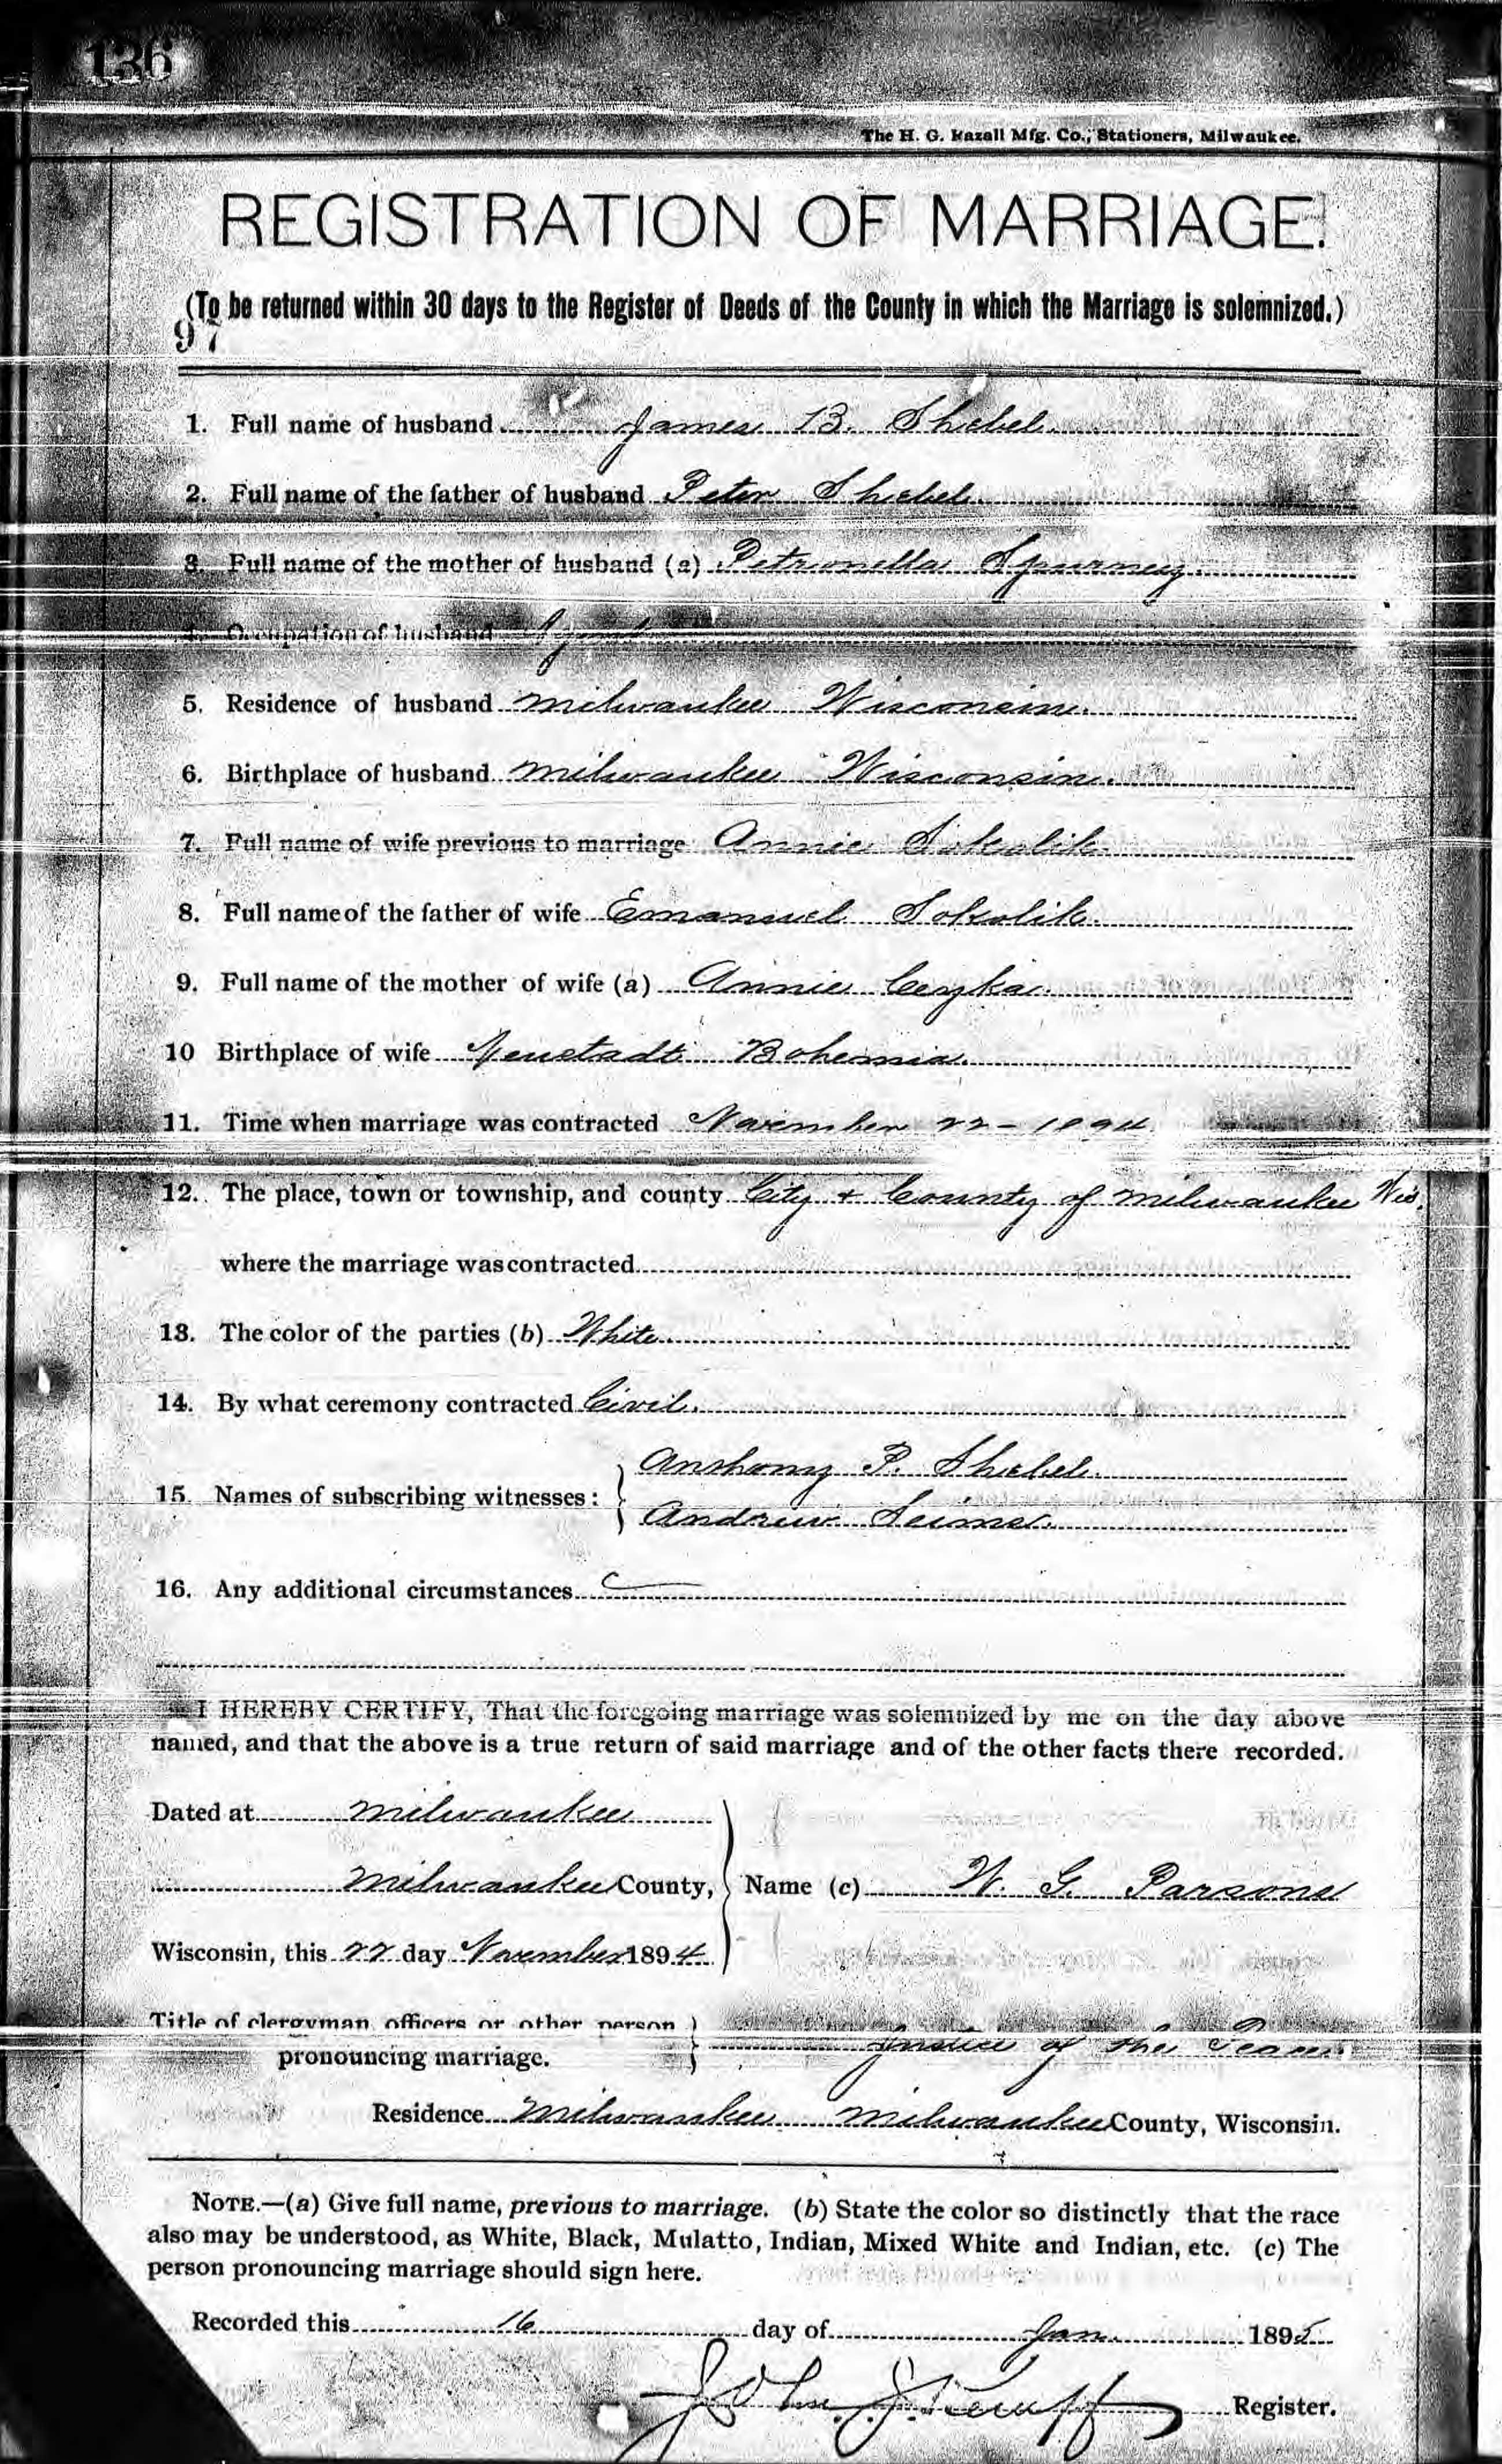 136
The H. G. Razall Mfg. Co., Stationers, Milwaukee.
REGISTRATION OF MARRIAGE.
(To be returned within 30 days to the Register of Deeds of the County in which the Marriage is solemnized.)
97
1. Full name of husband James B. Shebel.
2. Full name of the father of husband Peter Shebel.
3. Full name of the mother of husband (a) Petronella Spurney.
4. Occupation of husband
5. Residence of husband Milwaukee Wisconsin.
6. Birthplace of husband Milwaukee Wisconsin.
7. Full name of wife previous to marriage Annie Sokolik.
8. Full name of the father of wife Emanuel Sokolik.
9. Full name of the mother of wife (a) Annie Cezka.
10 Birthplace of wife Neustadt Bohemia.
11. Time when marriage was contracted November 22 - 1894.
12. The place, town or township, and county City & County of Milwaukee Wis.
where the marriage was contracted
13. The color of the parties (b) White.
14. By what ceremony contracted Civil.
Anthony P. Shebel.
15. Names of subscribing witnesses:
Andrew Seimet.
16. Any additional circumstances
I HEREBY CERTIFY, That the foregoing marriage was solemnized by me on the day above
named, and that the above is a true return of said marriage and of the other facts there recorded.
Dated at Milwaukee
Milwaukee County, Name (c) W. G. Parsons
Wisconsin, this 22 day November 1894.
Title of clergyman, officers or other person
pronouncing marriage. Justice of the Peace.
Residence Milwaukee Milwaukee County, Wisconsin.
NOTE.—(a) Give full name, previous to marriage. (b) State the color so distinctly that the race
also may be understood, as White, Black, Mulatto, Indian, Mixed White and Indian, etc. (c) The
person pronouncing marriage should sign here.
Recorded this 16 day of Jan. 1895
John J. Kempf Register.